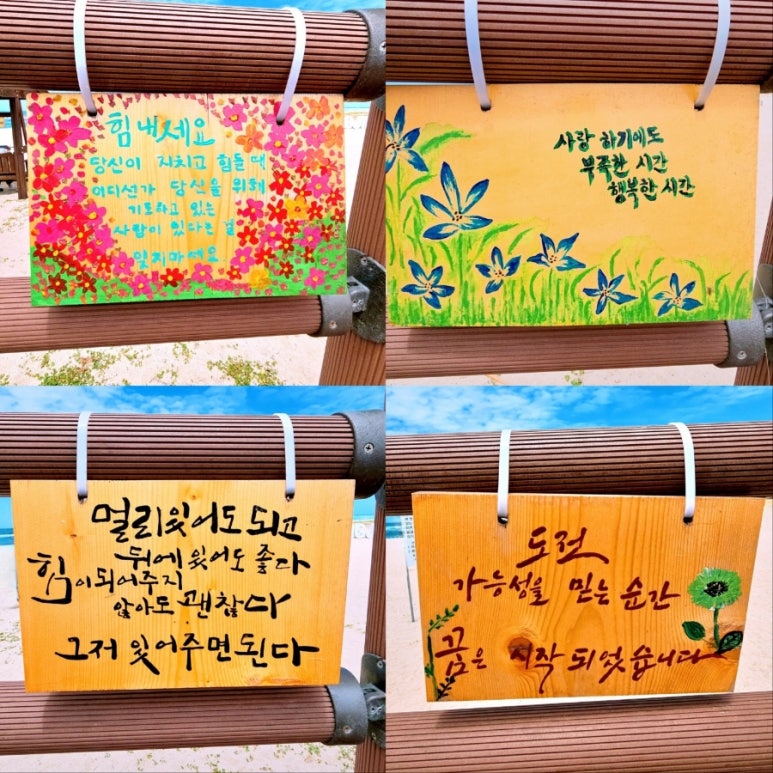 힘내세요
당신이 지치고 힘들 때
어디선가 당신을 위해
기도하고 있는
사람이 있다는 걸
잊지마세요
사랑 하기에도
부족한 시간
행복한 시간
멀리 있어도 되고
뒤에 있어도 좋다
힘이 되어주지
않아도 괜찮다
그저 있어주면 된다
도전
가능성을 믿는 순간
꿈은 시작되었습니다